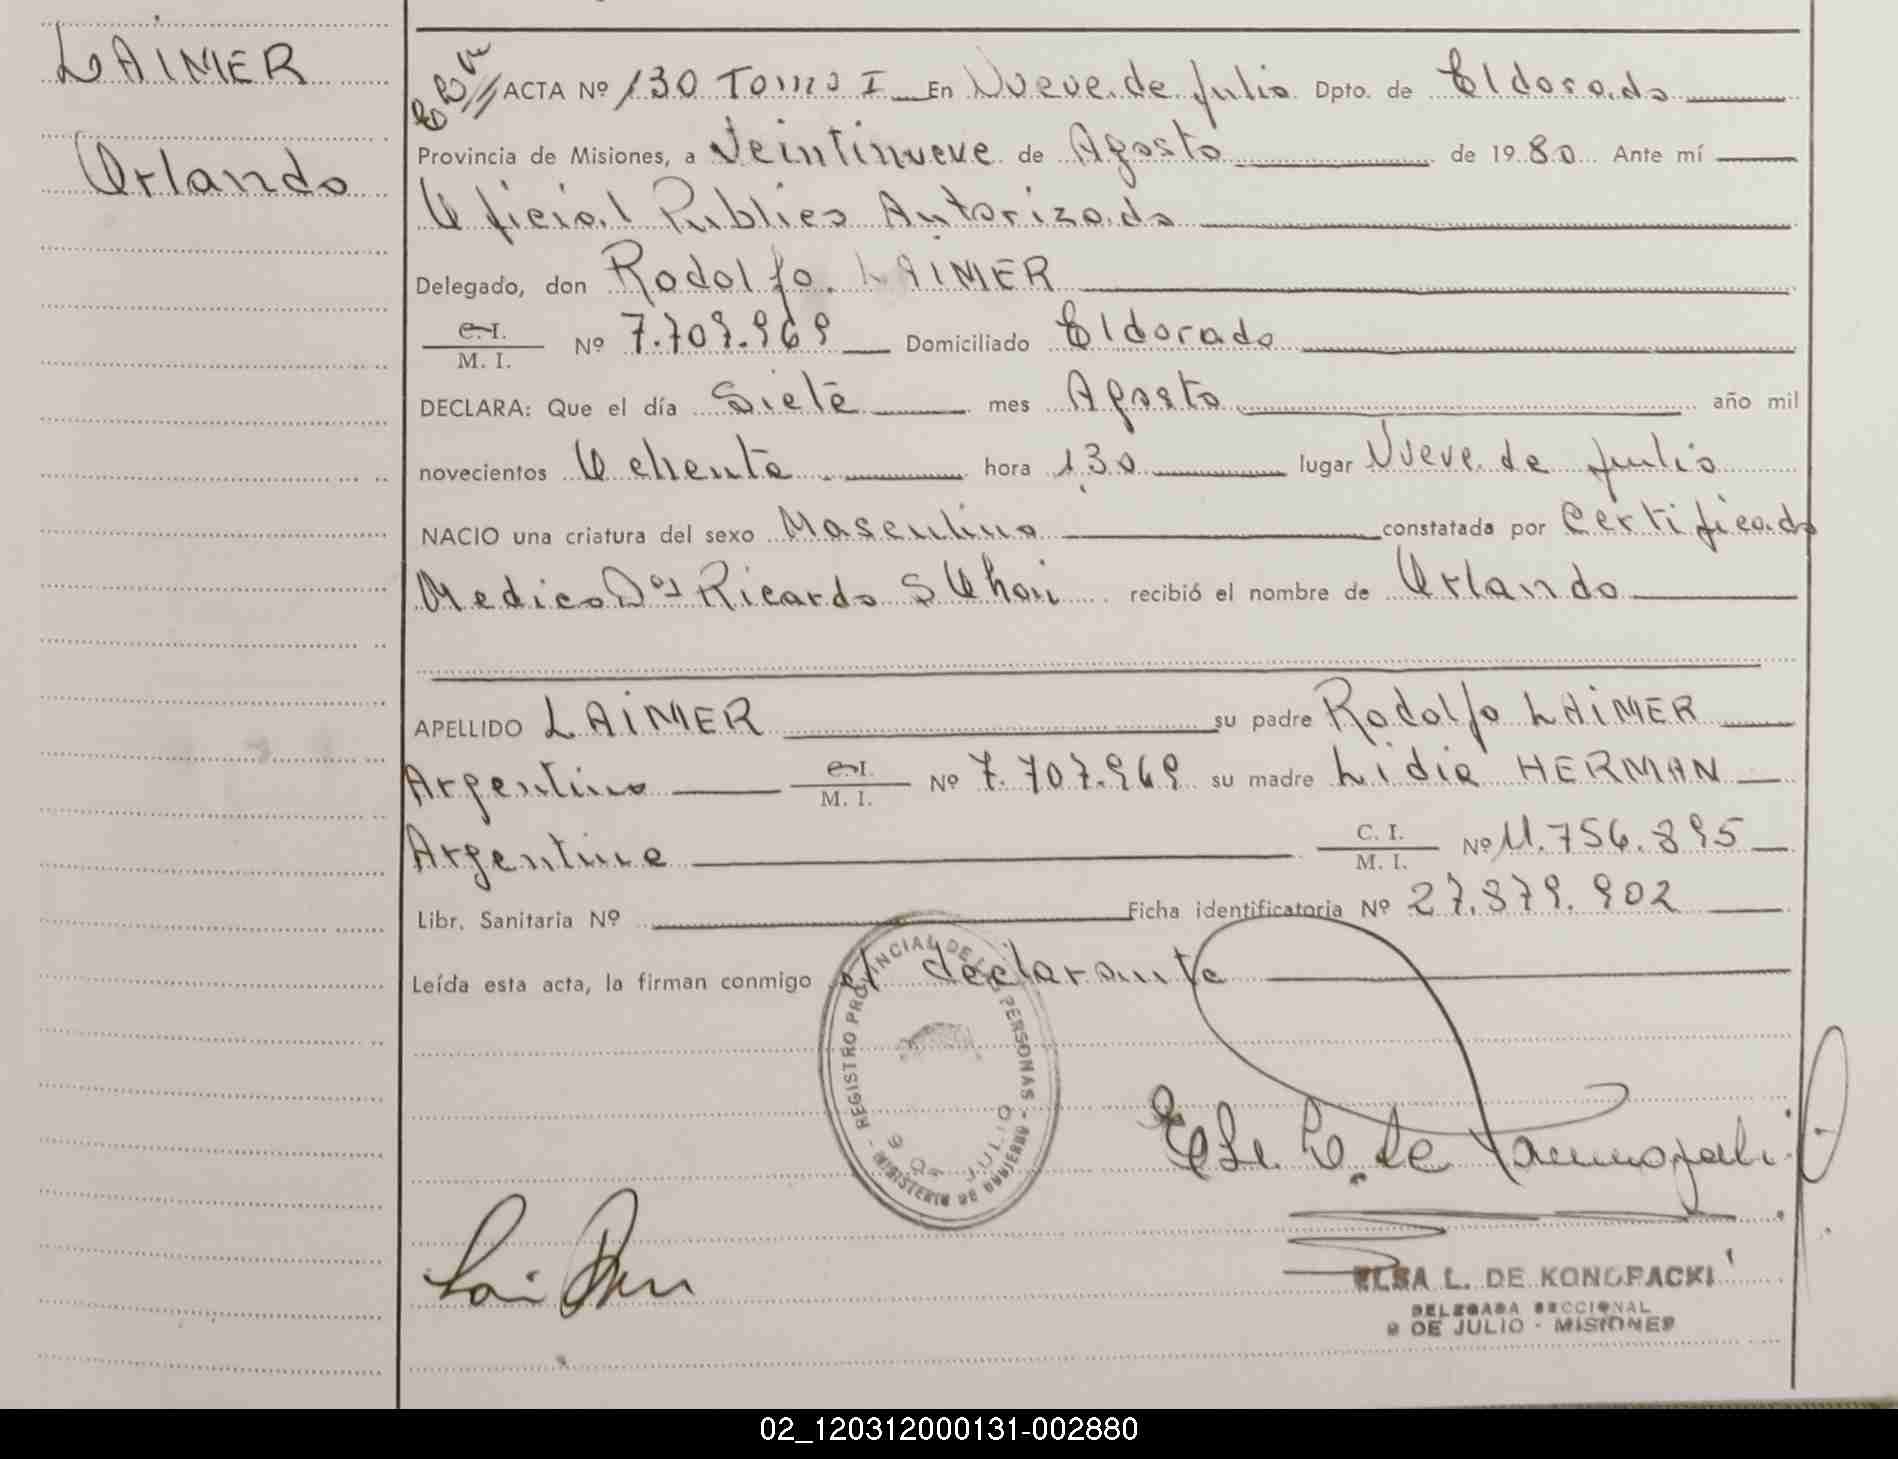 LAIMER
Orlando
ACTA Nº 130 Tomo I En Nueve de Julio Dpto. de Eldorado
Provincia de Misiones, a Veintinueve de Agosto de 1980 Ante mí
Oficial Publico Autorizado
Delegado, don Rodolfo LAIMER
C.I.
M. I. Nº 7.707.969 Domiciliado Eldorado
DECLARA: Que el día Siete mes Agosto año mil
novecientos Ochenta hora 1,30 lugar Nueve de Julio
NACIO una criatura del sexo Masculino constatada por Certificado
Medico Ricardo recibió el nombre de Orlando
APELLIDO LAIMER su padre Rodolfo LAIMER
Argentino C.I.
M. I. Nº 7.707.969 su madre Lidia HERMAN
Argentina C. I.
M. I. Nº 11.756.895
Libr. Sanitaria Nº Ficha identificatoria Nº 27.879.902
Leída esta acta, la firman conmigo el declarante
REGISTRO PROVINCIAL DE LAS PERSONAS
MINISTERIO DE GOBIERNO
9 DE JULIO
ELSA L. DE KONOPACKI
DELEGADA SECCIONAL
9 DE JULIO - MISIONES
02_120312000131-002880